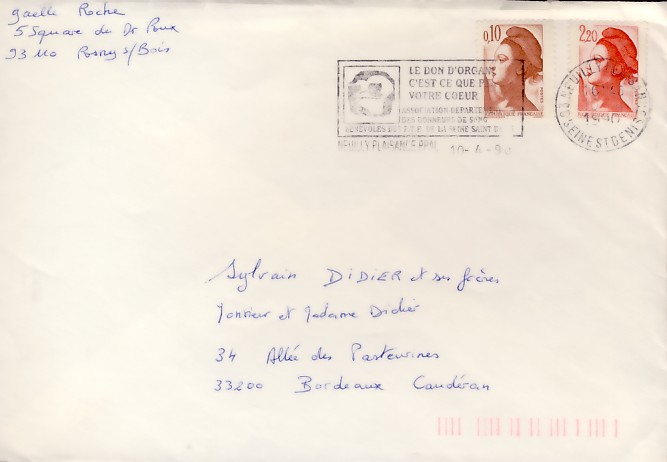 Gaelle Roche
5 Square du Dr Roux
93110 Rosny s/Bois
0,10
2,20
LE DON D'ORGAN
C'EST CE QUE
VOTRE COEUR
ASSOCIATION DEPARTE
DES DONNEURS DE SANG
BENEVOLES DES P.T.T. DE LA SEINE SAINT D
NEUILLY PLAISANCE PPAL 19-4-90
93 SEINE ST DENIS
Sylvain DIDIER et ses frères
Monsieur et Madame Didier
34 Allée des
33200 Bordeaux Caudéran